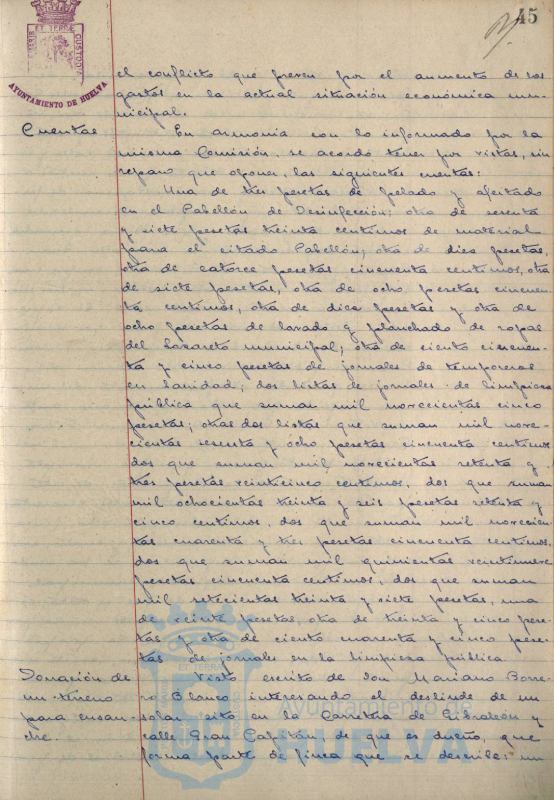 45
PORTUS MARIS ET TERRAE CUSTODIA
AYUNTAMIENTO DE HUELVA
el conflicto que preven por el aumento de los
gastos en la actual situación económica mu-
nicipal.
Cuentas En armonia con lo informado por la
misma Comisión, se acordó tener por vistas, sin
reparo que oponer, las siguientes cuentas:
Una de tres pesetas de pelado y afeitado
en el Pabellón de Desinfección; otra de sesenta
y siete pesetas treinta centimos de material
para el citado Pabellón; otra de diez pesetas,
otra de catorce pesetas cincuenta centimos, otra
de siete pesetas, otra de ocho pesetas cincuen-
ta centimos, otra de diez pesetas y otra de
ocho pesetas de lavado y planchado de ropas
del Lazareto municipal; otra de ciento cincuen-
ta y cinco pesetas de jornales de temporeros
en Sanidad; dos listas de jornales de limpieza
pública que suman mil novecientas cinco
pesetas; otras dos listas que suman mil nove-
cientas sesenta y ocho pesetas cincuenta centimos
dos que suman mil novecientas setenta y
tres pesetas veinticinco centimos, dos que suman
mil ochocientas treinta y seis pesetas setenta y
cinco centimos, dos que suman mil novecien-
tas cuarenta y tres pesetas cincuenta centimos,
dos que suman mil quinientas veintinueve
pesetas cincuenta centimos, dos que suman
mil setecientas treinta y siete pesetas, una
de veinte pesetas, otra de treinta y cinco pese-
tas y otra de ciento cuarenta y cinco pese-
tas de jornales en la limpieza pública.
Donación de Visto escrito de Don Mariano Borre-
un terreno ro Blanco interesando el deslinde de un
para ensan- solar sito en la Carretera de Gibraleón y
che. calle Gran Capitán, de que es dueño, que
forma parte de finca que se describe: un
Ayuntamiento de
HUELVA